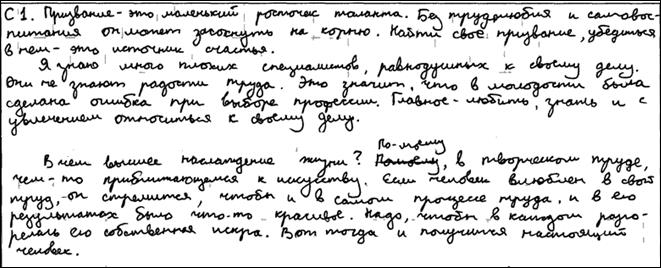 С 1. Призвание - это маленький росточек таланта. Без трудолюбия и самовос-
питания он может засохнуть на корню. Найти своё призвание, убедиться
в нем - это источник счастья.
Я знаю много плохих специалистов, равнодушных к своему делу.
Они не знают радости труда. Это значит, что в молодости была
сделана ошибка при выборе профессии. Главное - любить, знать и с
увлечением относиться к своему делу.
По-моему
В чем высшее наслаждение жизни? Помоему, в творческом труде,
чем-то приближающемся к искусству. Если человек влюблен в свой
труд, он стремится, чтобы и в самом процессе труда, и в его
результатах было что-то красивое. Надо, чтобы в каждом разго-
релась его собственная искра. Вот тогда и получится настоящий
человек.